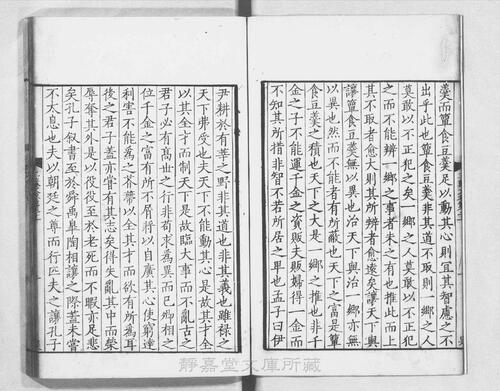 羹而簞食豆羹足以動其心則宜其智慮之不
出乎此也簞食豆羹非其道不取則一鄉之人
莫敢以不正犯之矣一鄉之人莫敢以不正犯
之而不能辦一鄉之事者未之有也推此而上
其不取者愈大則其所辦者愈遠矣讓天下與
讓簞食豆羹無以異也治天下與治一鄉亦無
以異也然而不能者有所蔽也天下之富是簞
食豆羹之積也天下之大是一鄉之推也非千
金之子不能運千金之資販夫販婦得一金而
不知其所措非智不若所居之卑也孟子曰伊
尹耕於有莘之野非其道也非其義也雖祿之
天下弗受也夫天下不能動其心是故其才全
以其全才而制天下是故臨大事而不亂古之
君子必有高世之行非苟求為異而已卿相之
位千金之富有所不屑將以自廣其心使窮達
利害不能為之芥蔕以全其才而欲有所為耳
後之君子蓋亦嘗有其志矣得失亂其中而榮
辱奪其外是以役役至於老死而不暇亦足悲
矣孔子叙書至於舜禹皐陶相讓之際蓋未嘗
不太息也夫以朝廷之尊而行匹夫之讓孔子
靜嘉堂文庫所藏